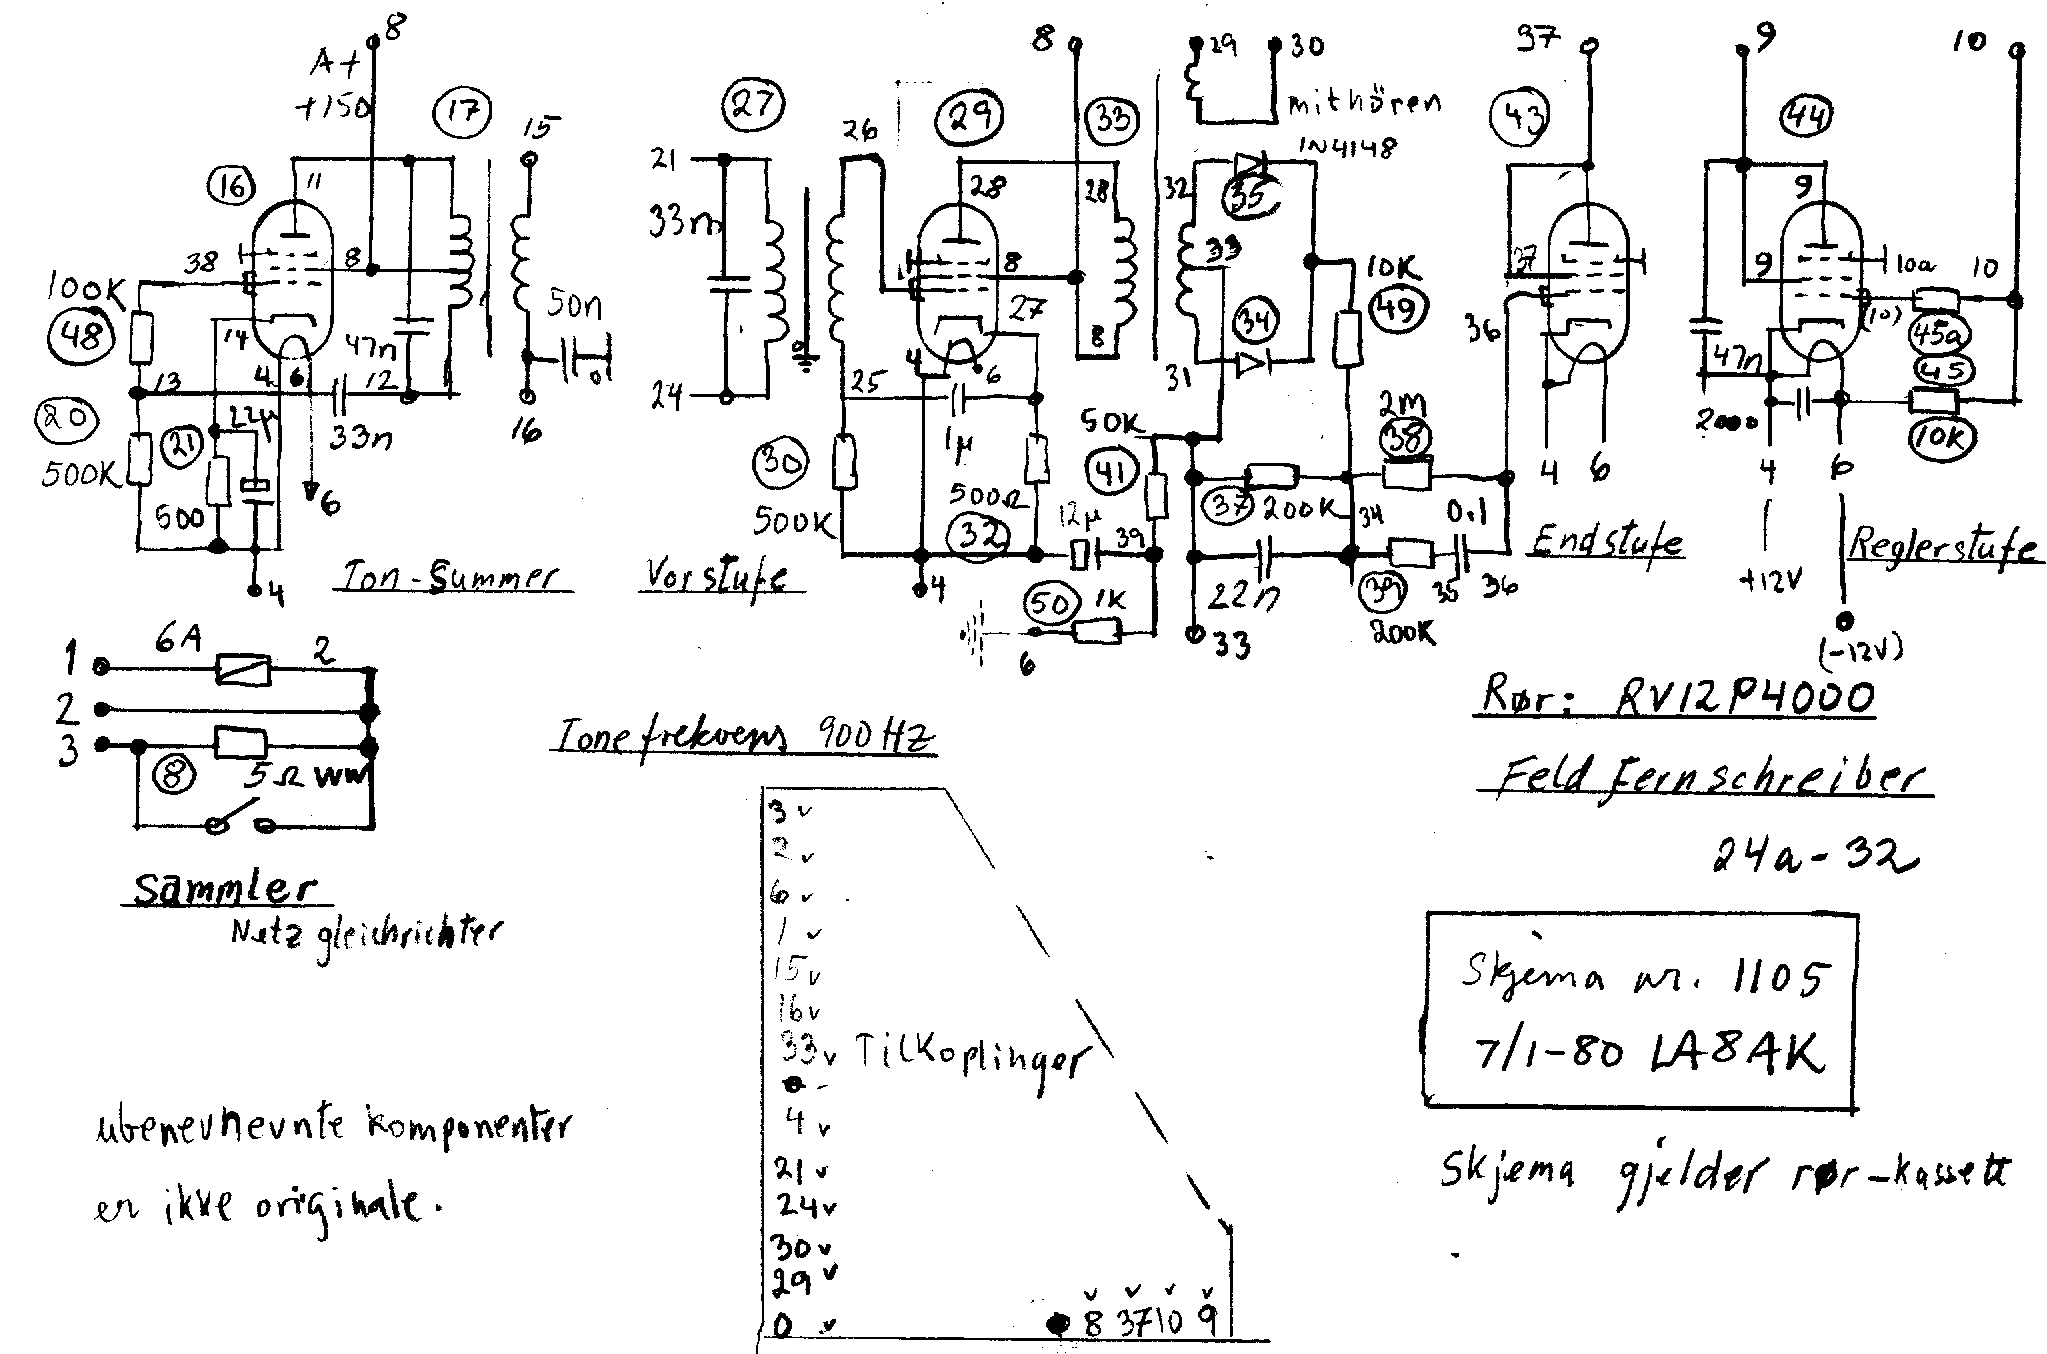 8
A+
+150
16
17
15
11
38
8
100K
48
14
4
6
47n
50n
0
13
12
20
22µ
33n
16
21
500K
500
6
4
Ton-Summer
27
26
29
21
33n
0
24
25
28
8
4
6
27
1µ
30
500K
500Ω
32
4
Vorstufe
8
33
28
8
29
30
mithören
1N4148
32
35
33
34
31
10K
49
50K
41
2m
38
37
200K
34
0.1
12µ
39
50
1K
22n
39
35
36
200K
6
33
37
43
37
36
4
6
Endstufe
9
10
44
9
9
10a
10
(10)
45a
45
47n
2000
10K
4
6
+12V
Reglerstufe
(-12V)
1
6A
2
2
3
8
5Ω WW
Sammler
Netzgleichrichter
Tonefrekvens 900 HZ
Rør: RV12P4000
Feld fernschreiber
24a-32
3 v
2 v
6 v
1 v
15 v
16 v
33 v Tilkoplinger
4 v
21 v
24 v
30 v
29 v
0 v
8 37 10 9
Skjema nr. 1105
7/1-80 LA8AK
Skjema gjelder rør-kassett
ubenevnevnte komponenter
er ikke originale.